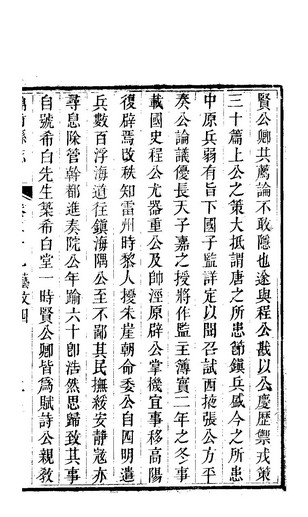 賢公卿共薦論不敢隱也遂與程公戡以公慶歷禦戎策
三十篇上公之策大抵謂唐之所患節鎮兵盛今之所患
中原兵弱有旨下國子監詳定以聞召試西掖張公方平
奏公論議優長天子嘉之授將作監主簿實二年之冬事
載國史程公尤器重公及帥涇原辟公掌機宜事移高陽
復辟焉改秩知雷州時黎人擾朱崖朝命委公自四明遣
兵數百浮海道往鎮海隅公至不鄙其民撫綏安靜寇亦
尋息除管幹都進奏院公年踰六十卽浩然思歸致其事
自號希白先生築希白堂一時賢公卿皆為賦詩公親教
藝文四